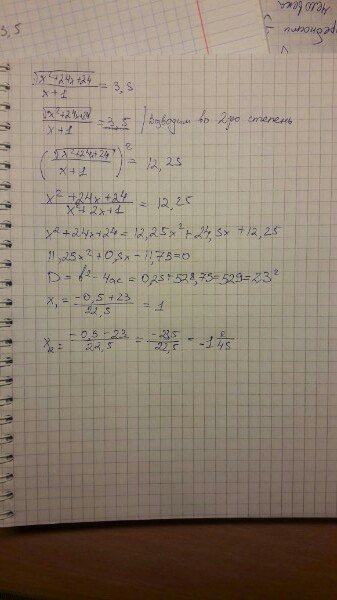 3,5
человека
√x²+24x+24 / x+1 = 3,5
√x²+24x+24 / x+1 = 3,5 | Возводим во 2ую степень
(√x²+24x+24 / x+1)² = 12,25
x²+24x+24 / x²+2x+1 = 12,25
x²+24x+24=12,25x²+24,5x+12,25
11,25x²+0,5x-11,75=0
D=b²-4ac=0,25+528,75=529=23²
x₁=-0,5+23 / 22,5 = 1
x₂=-0,5-23 / 22,5 = -23,5 / 22,5 = -1 2/45